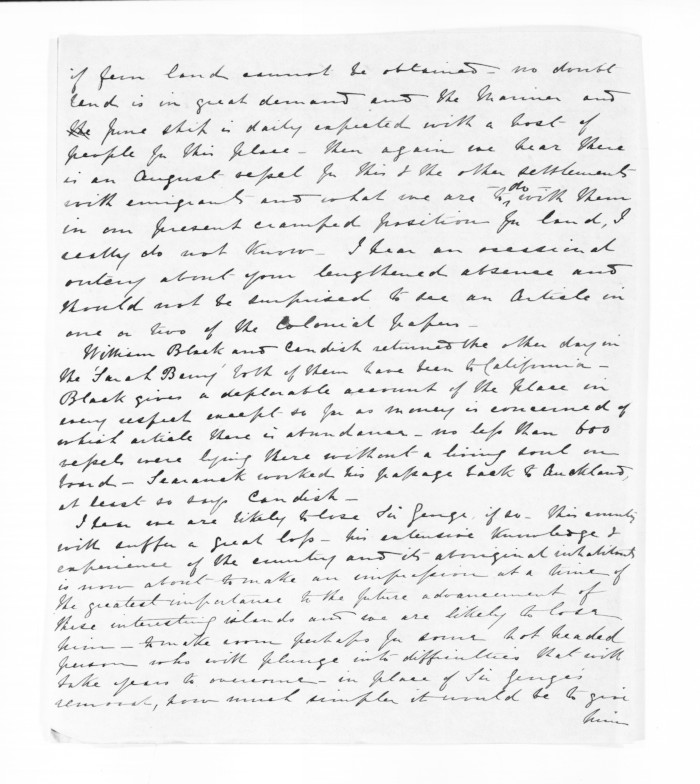 if fern land cannot be obtained - no doubt
land is in great demand and the Mariner and
the June ship is daily expected with a host of
people for this place - then again we hear there
is an August vessel for this & the other settlements
with emigrants and what we are to do with them
in our present cramped position for land, I
really do not know - I hear an ocassional
outcry about your lengthened absence and
should not be surprised to see an Article in
one or two of the Colonial papers -
William Black and Candish returned the other day in
the 'Sarah Berry' both of them have been to California -
Black gives a deplorable account of the place in
every respect except so far as money is concerned of
which article there is abundance - no less than 600
vessels were lying there without a living soul on
board - worked his passage back to Auckland,
at least so says Candish -
I hear we are likely to lose Sir George, if so - this country
will suffer a great loss - his extensive knowledge &
experience of the country and its aboriginal inhabitants
is now about to make an impression at a time of
the greatest importance to the future advancement of
these interesting islands and we are likely to lose
him - to make room perhaps for some hot headed
person who will plunge into difficulties that will
take years to overcome - in place of Sir George's
removal, how much simpler it would be to give
him